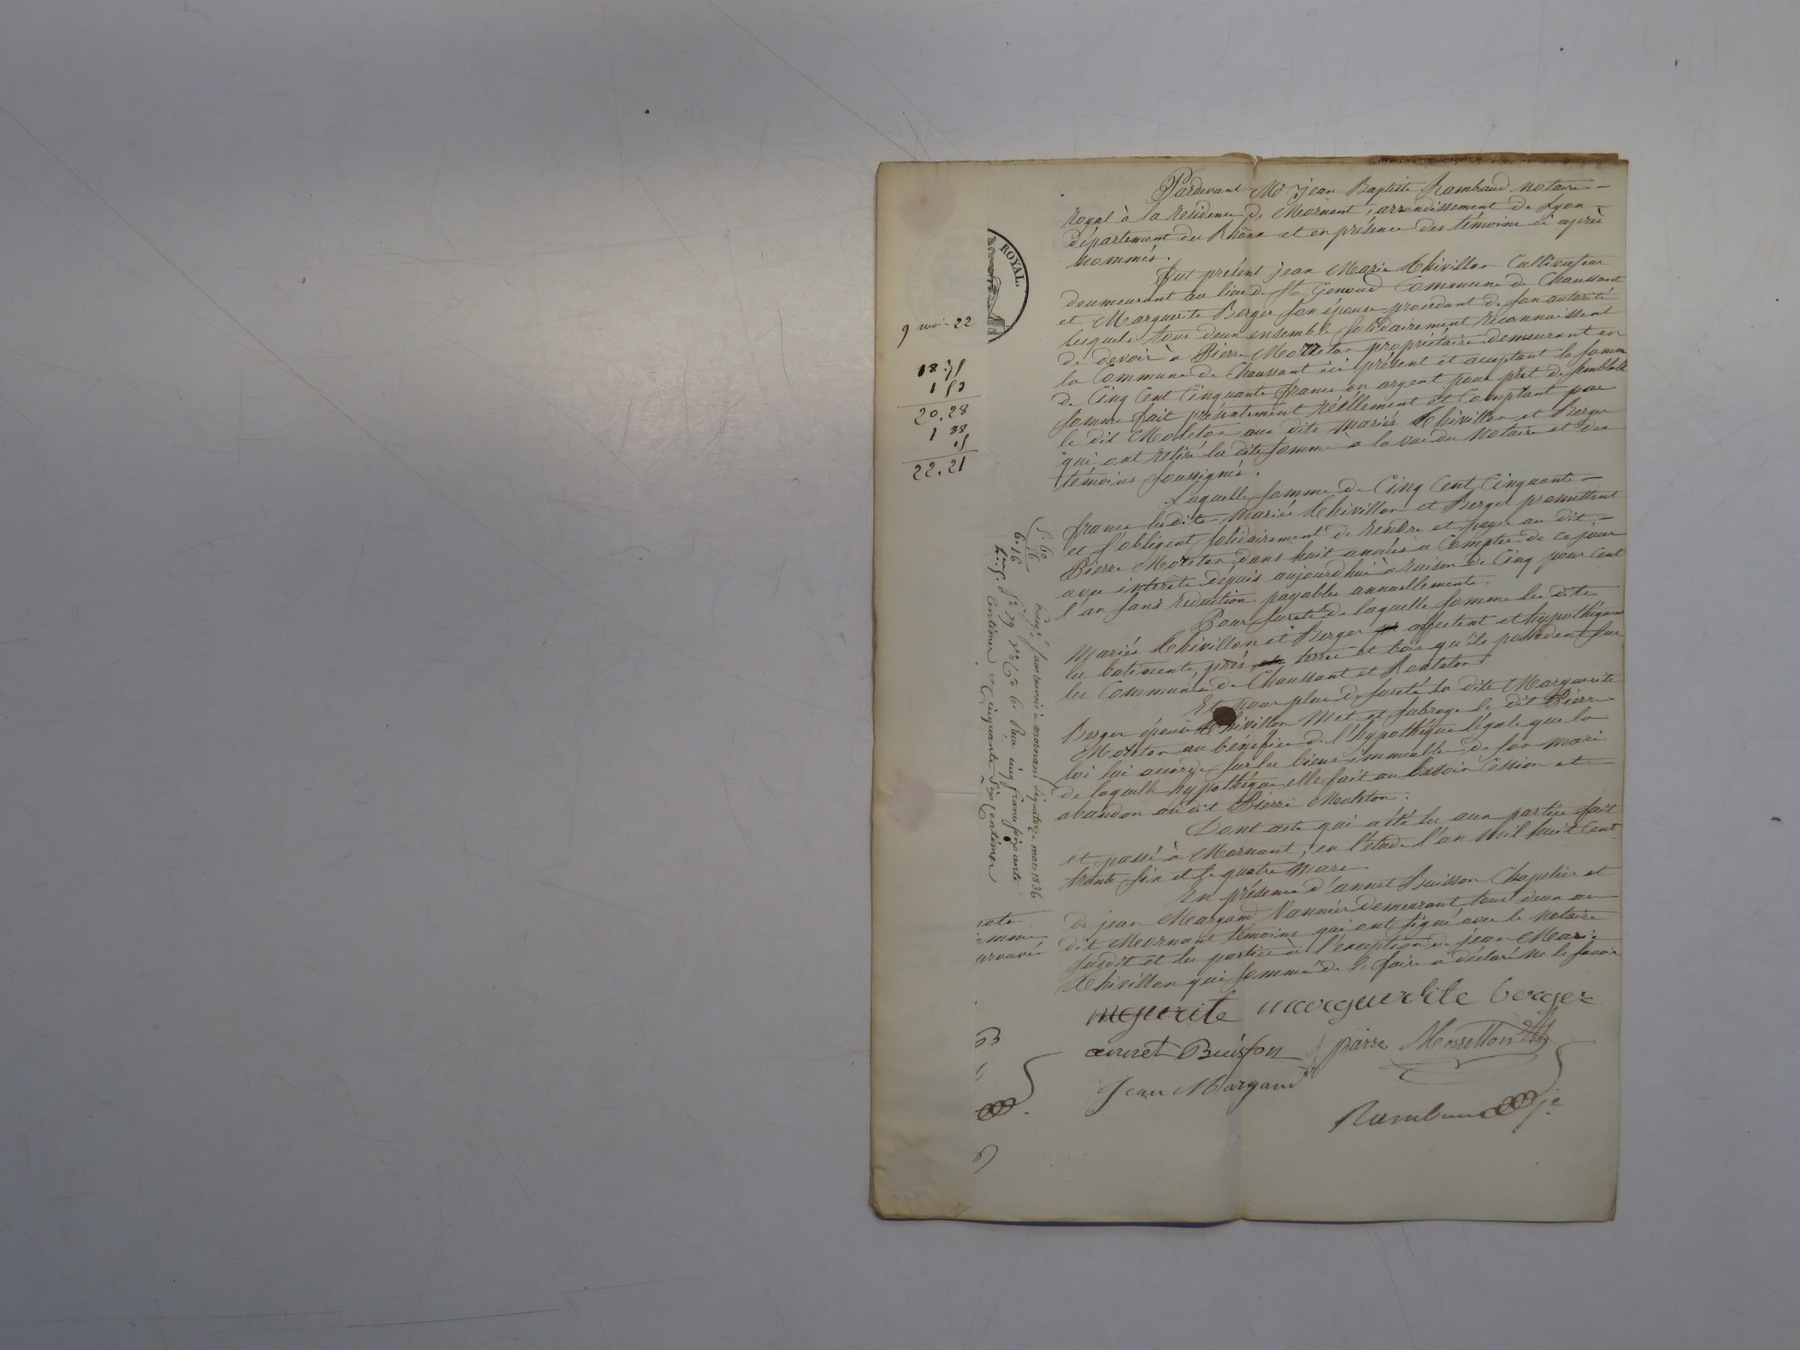 Pardevant Me jean Baptiste Rambaud notaire
Royal à la Residence de Mornant, arrondissement de Lyon
département du Rhône et en présence des témoins ci après
nommés.
Fut présent jean Marie Thivillon Cultivateur
demeurant au lieu de St Genoud Commune de Chaussant
et Marguerite Berger son épouse procédant de son autorité
lesquels tous deux ensemble solidairement reconnaissent
de devoir à Pierre Morleton propriétaire demeurant en
la Commune de Chaussant ici présent et acceptant la somme
de Cinq Cent Cinquante francs en argent pour prêt de semblable
somme fait présentement réellement et Comptant par
le dit Morleton aux dits Mariés Thivillon et Berger
qui ont retiré la dite somme à la vue du Notaire et des
témoins soussignés.
Laquelle somme de Cinq Cent Cinquante
francs les dits Mariés Thivillon et Berger promettent
et s'obligent solidairement de rendre et payer au dit
Pierre Morleton dans huit années à Compter de ce jour
avec intérêts depuis aujourd'hui à raison de Cinq pour Cent
l'an sans reduction payables annuellement.
Pour sureté de laquelle somme les dits
Mariés Thivillon et Berger affectent et hypothèquent
les batiments, prés, terres et bois qu'ils possèdent sur
les Communes de Chaussant et Rontalon
Et pour plus de sureté la dite Marguerite
Berger épouse Thivillon Met et subroge le dit Pierre
Morleton au bénéfice de l'hypothèque légale que la
loi lui accorde sur les biens immeubles de son mari
de laquelle hypothèque elle fait au besoin Cession et
abandon au dit Pierre Morleton.
Dont acte qui a été lu aux parties fait
et passé à Mornant, en l'étude l'an mil huit Cent
trente six et le quatre Mars
En présence d'annet Buisson Chapelier et
de jean Margand Vannier demeurant tous deux au
dit Mornant témoins qui ont signé avec le notaire
susdit et les parties à l'exception de jean Marie
Thivillon qui sommé de le faire a déclaré ne le savoir
marguerite berger
annet Buisson pierre Morretton
Jean Margand
Rambaud
ROYAL.
9 mai 22
18.75
1 53
20.28
1 88
15
22.21
5.60
56
6.16